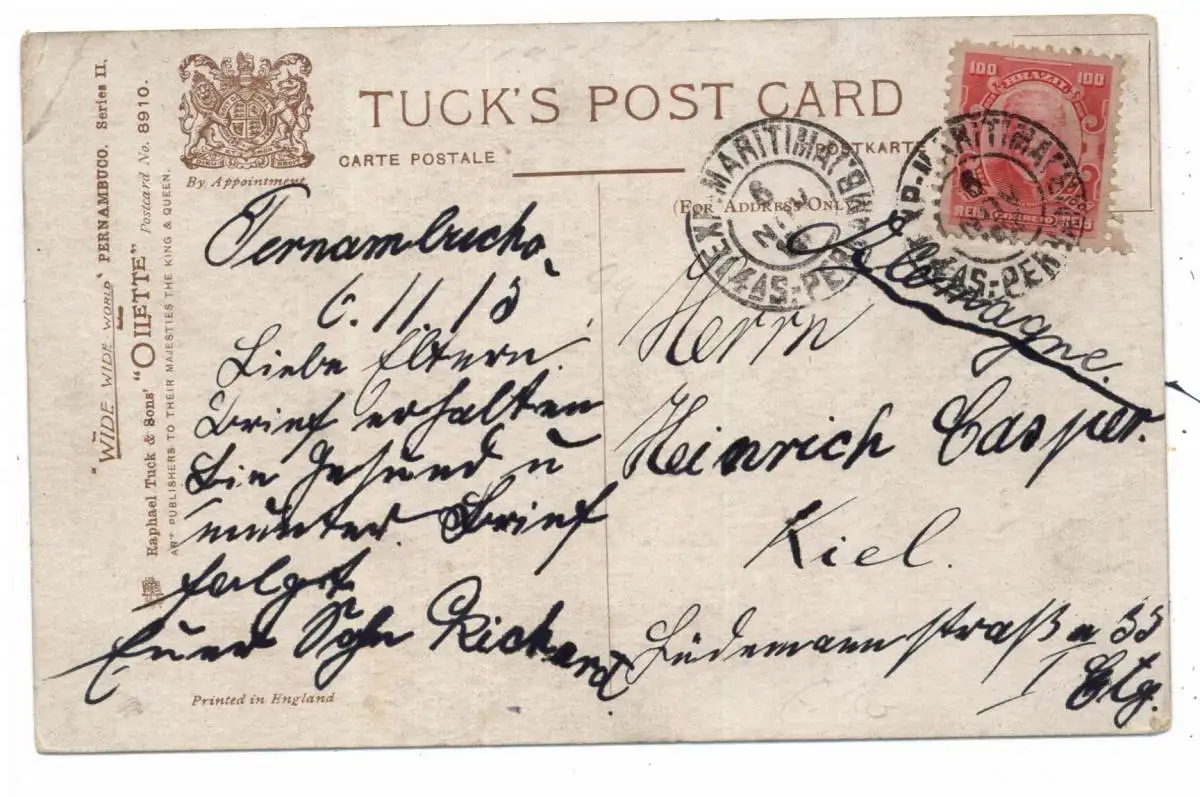 "WIDE WIDE WORLD" PERNAMBUCO. Series II.
"OILETTE" Postcard No. 8910.
Raphael Tuck & Sons'
ART PUBLISHERS TO THEIR MAJESTIES THE KING & QUEEN.
By Appointment
TUCK'S POST CARD
CARTE POSTALE
POSTKARTE
(FOR ADDRESS ONLY)
100 BRAZIL 100
REIS CORREIO REIS
MARITIMA
4AS: PER
MARITIMA
4AS: PER
Pernambucho,
6.11.13
Liebe Eltern.
Brief erhalten
Bin Gesund u
munter. Brief
folgt
Euer Sohn Richard
Allemagne.
Herrn
Heinrich Casper.
Kiel.
Lüdemannstraß 33
I Etg.
Printed in England